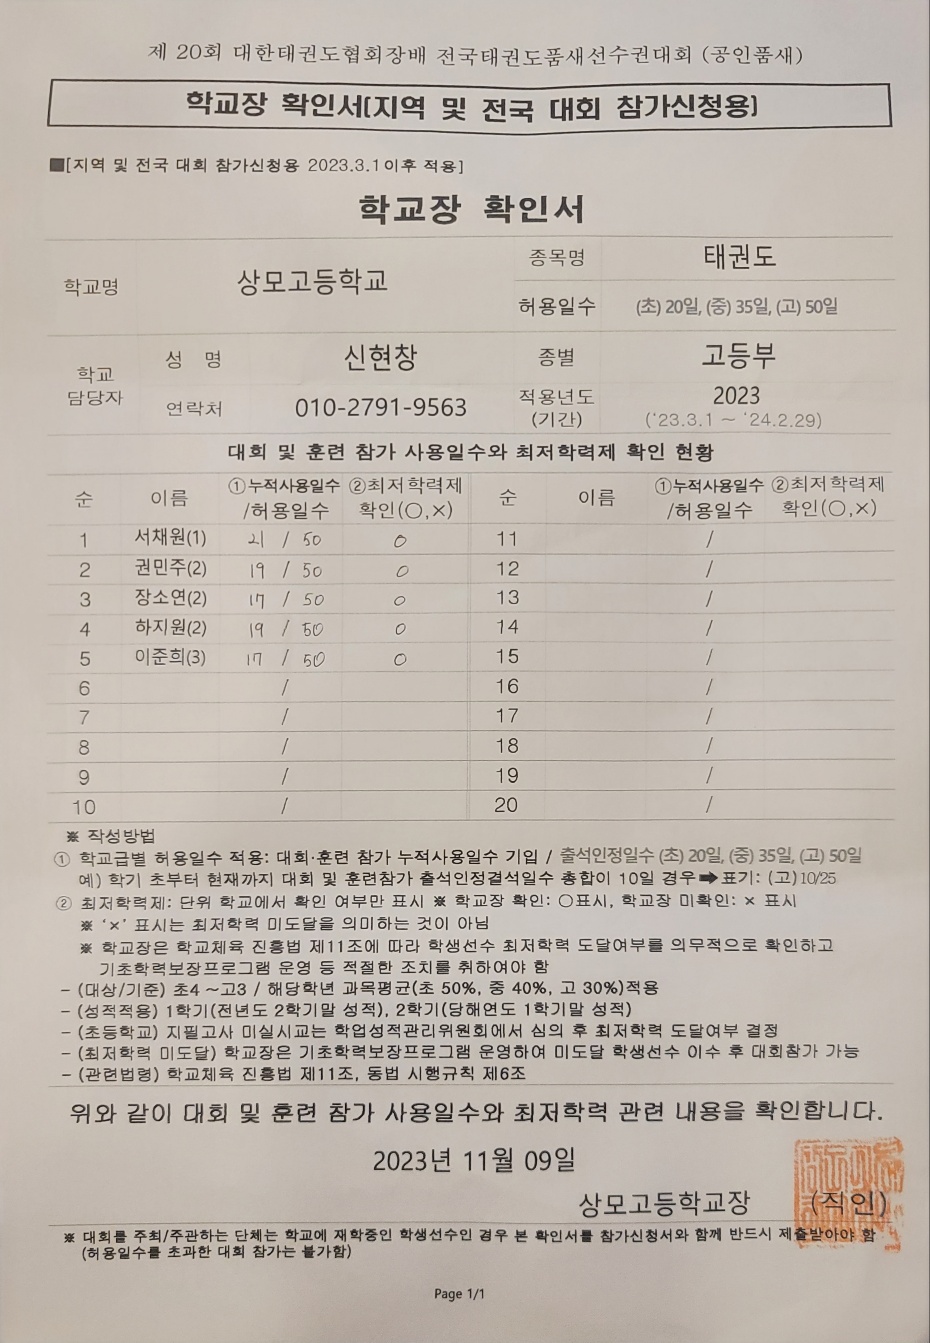 제 20회 대한태권도협회장배 전국태권도품새선수권대회 (공인품새)
학교장 확인서(지역 및 전국 대회 참가신청용)
■[지역 및 전국 대회 참가신청용 2023.3.1이후 적용]
학교장 확인서
학교명 상모고등학교 종목명 태권도
허용일수 (초) 20일, (중) 35일, (고) 50일
학교 담당자 성 명 신현창 종별 고등부
연락처 010-2791-9563 적용년도 (기간) 2023 (‘23.3.1 ~ ‘24.2.29)
대회 및 훈련 참가 사용일수와 최저학력제 확인 현황
순 이름 ①누적사용일수 /허용일수 ②최저학력제 확인(○,×) 순 이름 ①누적사용일수 /허용일수 ②최저학력제 확인(○,×)
1 서채원(1) 21 / 50 ○ 11 /
2 권민주(2) 19 / 50 ○ 12 /
3 장소연(2) 17 / 50 ○ 13 /
4 하지원(2) 19 / 50 ○ 14 /
5 이준희(3) 17 / 50 ○ 15 /
6 / 16 /
7 / 17 /
8 / 18 /
9 / 19 /
10 / 20 /
※ 작성방법
① 학교급별 허용일수 적용: 대회·훈련 참가 누적사용일수 기입 / 출석인정일수 (초) 20일, (중) 35일, (고) 50일
예) 학기 초부터 현재까지 대회 및 훈련참가 출석인정결석일수 총합이 10일 경우➡표기: (고)10/25
② 최저학력제: 단위 학교에서 확인 여부만 표시 ※ 학교장 확인: ○표시, 학교장 미확인: × 표시
※ ‘×’ 표시는 최저학력 미도달을 의미하는 것이 아님
※ 학교장은 학교체육 진흥법 제11조에 따라 학생선수 최저학력 도달여부를 의무적으로 확인하고
기초학력보장프로그램 운영 등 적절한 조치를 취하여야 함
- (대상/기준) 초4 ~고3 / 해당학년 과목평균(초 50%, 중 40%, 고 30%)적용
- (성적적용) 1학기(전년도 2학기말 성적), 2학기(당해연도 1학기말 성적)
- (초등학교) 지필고사 미실시교는 학업성적관리위원회에서 심의 후 최저학력 도달여부 결정
- (최저학력 미도달) 학교장은 기초학력보장프로그램 운영하여 미도달 학생선수 이수 후 대회참가 가능
- (관련법령) 학교체육 진흥법 제11조, 동법 시행규칙 제6조
위와 같이 대회 및 훈련 참가 사용일수와 최저학력 관련 내용을 확인합니다.
2023년 11월 09일
상모고등학교장 (직인)
※ 대회를 주최/주관하는 단체는 학교에 재학중인 학생선수인 경우 본 확인서를 참가신청서와 함께 반드시 제출받아야 함
(허용일수를 초과한 대회 참가는 불가함)
Page 1/1